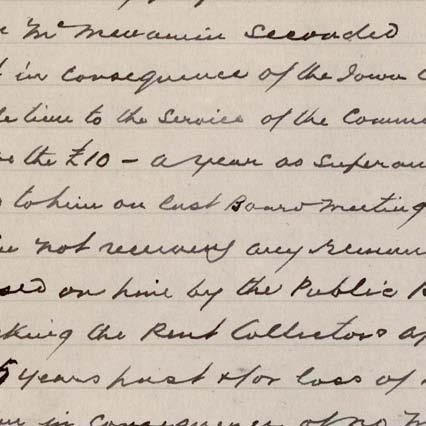 Mc Menamin Seconded
in Consequence of the Town
time to the Service of the Comm
the £10 - a year as Superan
to him on last Board Meeting
not receiving any Remun
on him by the Public
king the Rent Collectors
5 years past & for loss of
in consequence of no